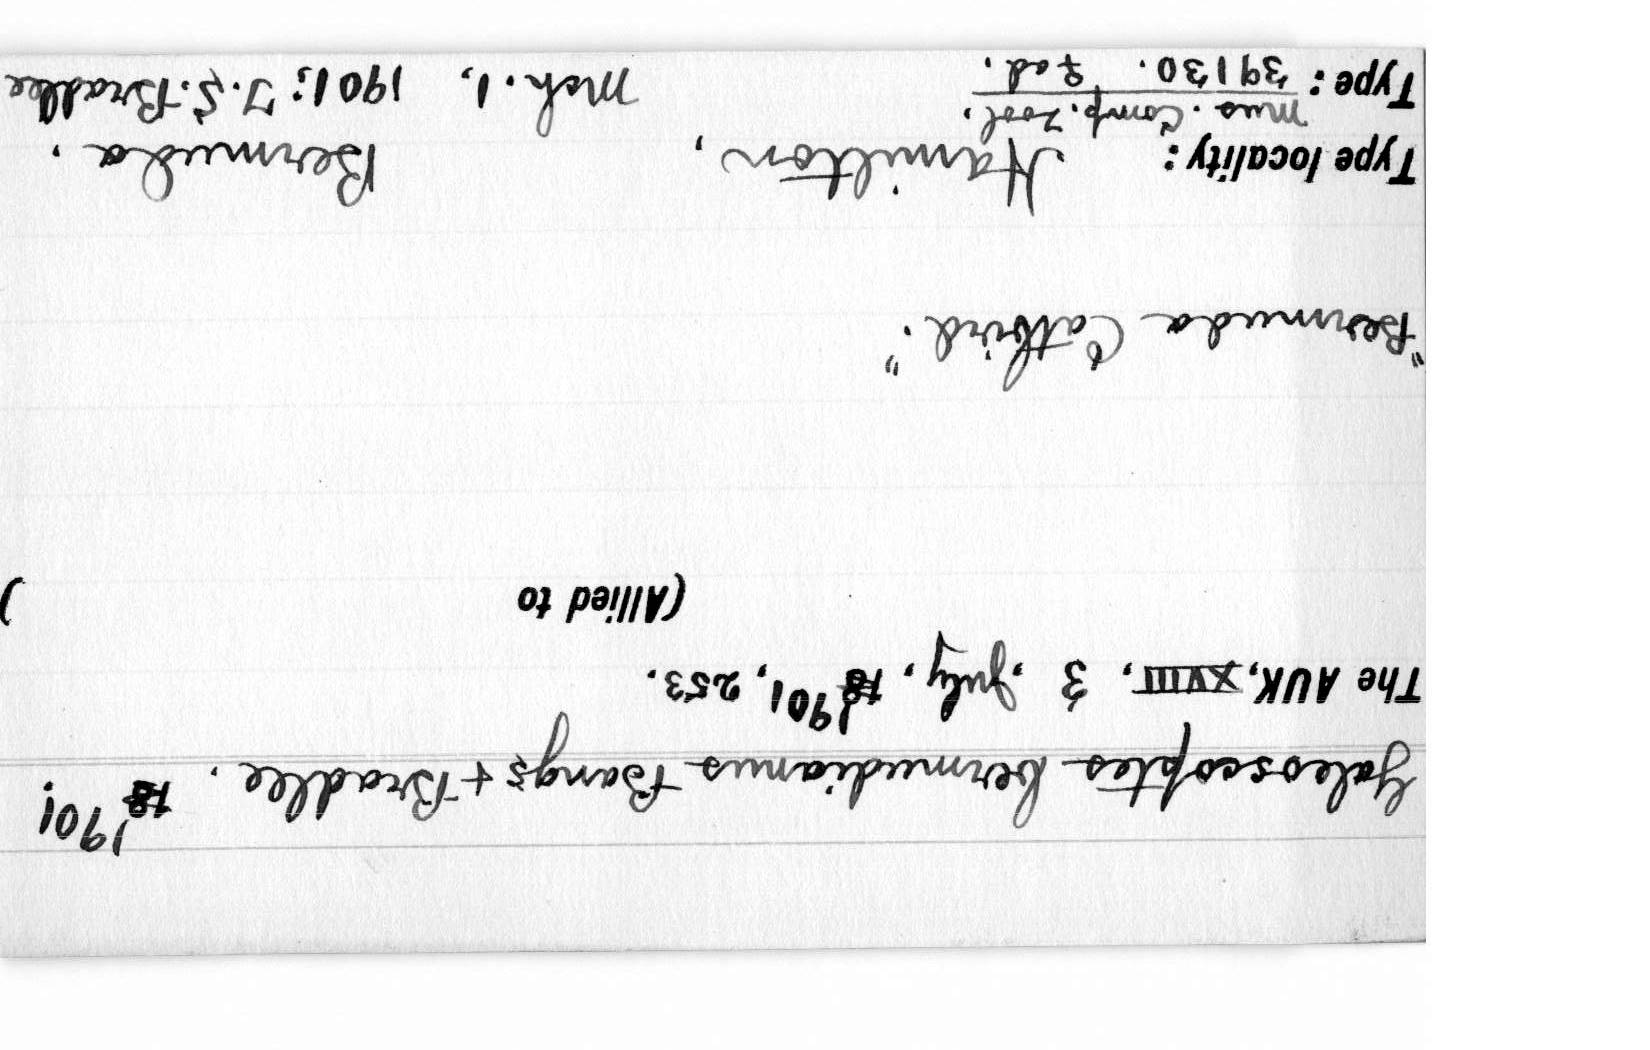 Galeoscoptes bermudianus Bangs + Bradlee. 18 1901!
The AUK, XVIII, 3, July, 18 1901, 253.
(Allied to )
"Bermuda Catbird."
Type locality: Hamilton, Bermuda.
Mus. Comp. Zool.
Type: 39130. ♀ ad. Mch. 1, 1901; T. S. Bradlee